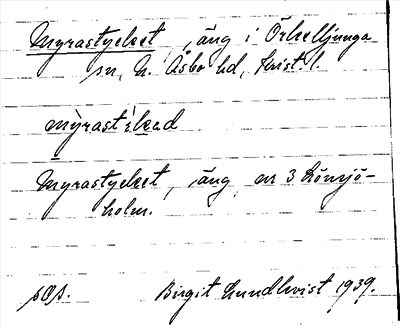 Myrastycket, äng i Örkelljunga
sn, N. Åsbo hd, Krist. l.
Myrastycket, äng, nr 3 Lönsjö-
holm.
sOs. Birgit Lundkvist 1939.